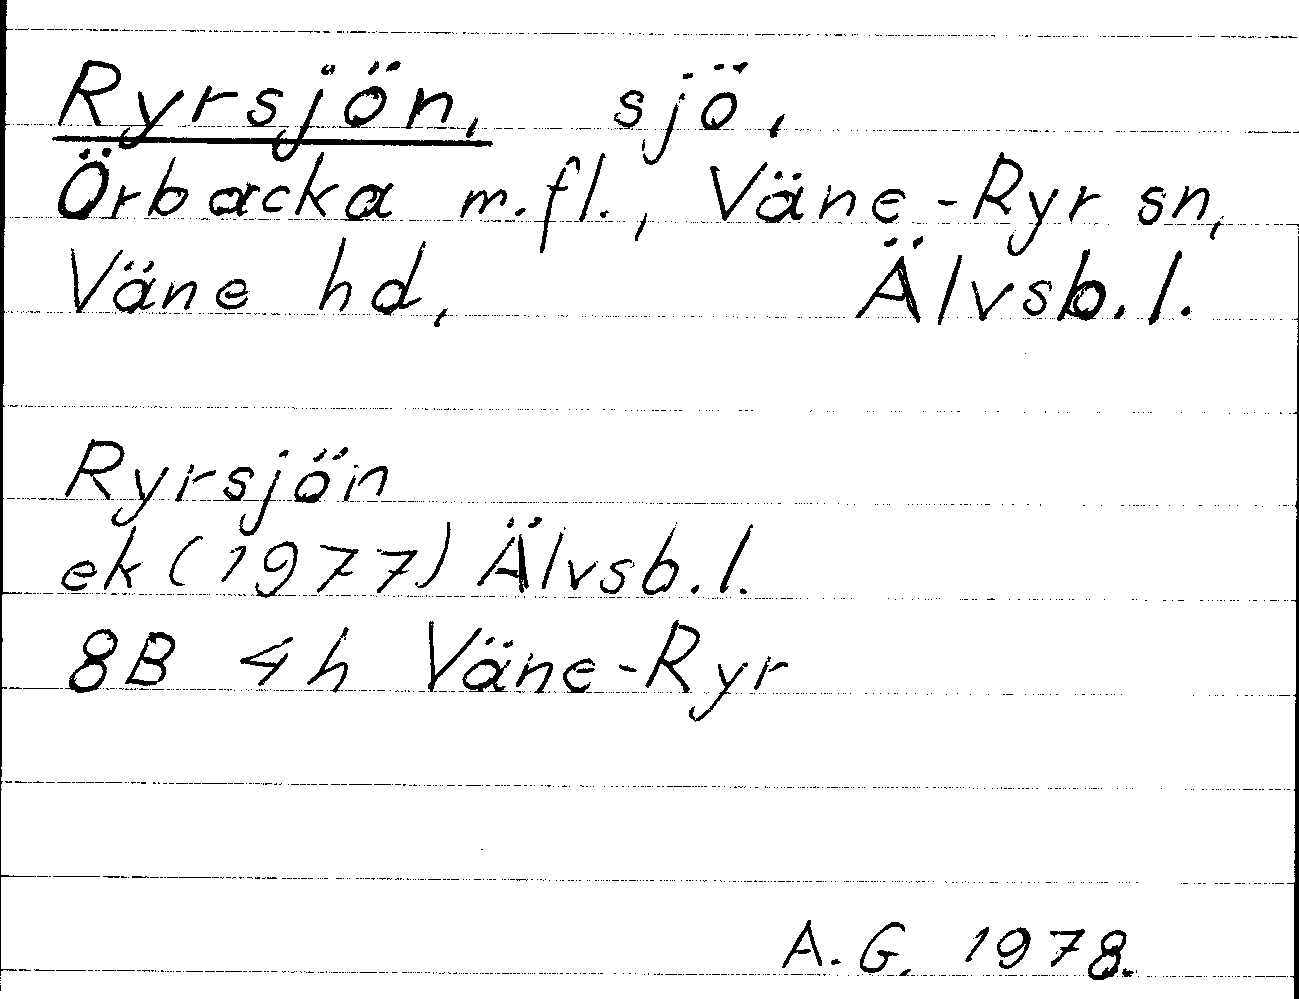 Ryrsjön, sjö,
Örbacka m.fl., Väne-Ryr sn,
Väne hd, Älvsb.l.
Ryrsjön
ek (1977) Älvsb.l.
8B 4h Väne-Ryr
A.G. 1978.